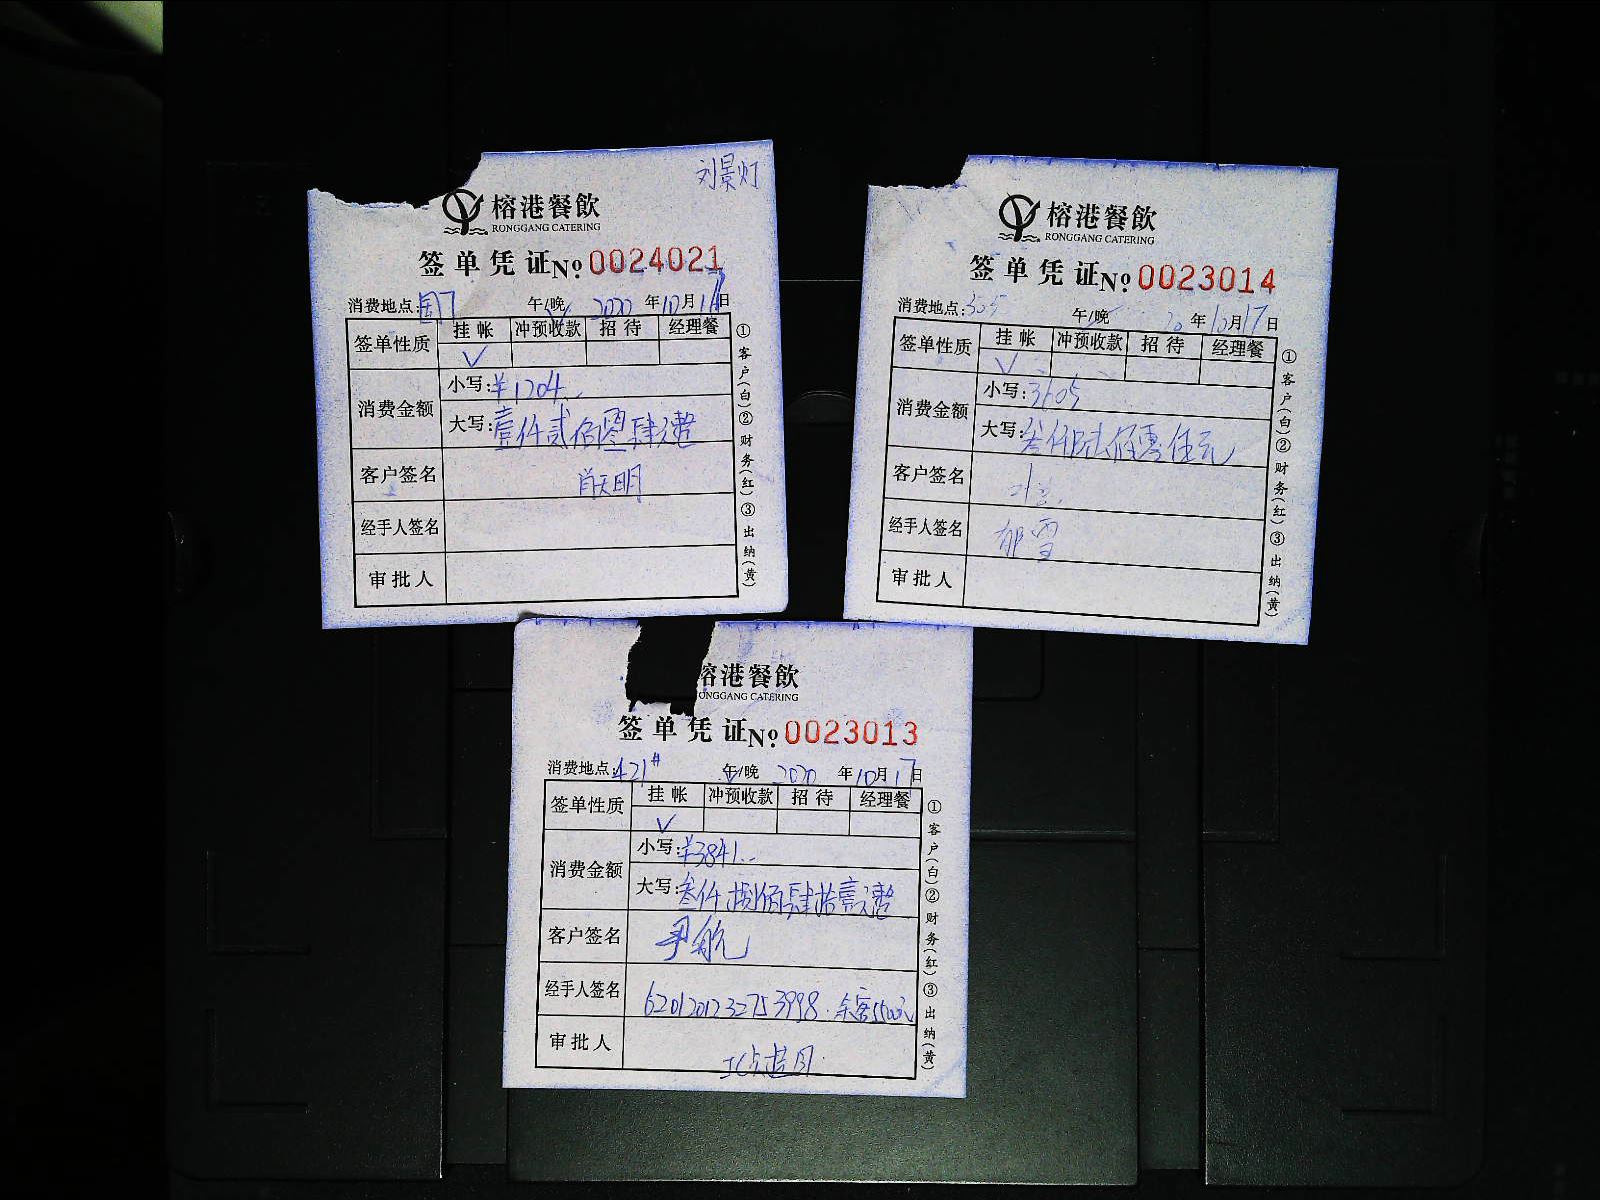 刘景灯
榕港餐飲
RONGGANG CATERING
签单凭证 No 0024021
消费地点: 午/晚 2020 年 10 月 日
签单性质 挂帐 冲预收款 招待 经理餐
√
消费金额 小写: ¥1204
大写: 壹仟贰佰零肆元整
客户签名 肖天明
经手人签名
审批人
①客户(白)②财务(红)③出纳(黄)
榕港餐飲
RONGGANG CATERING
签单凭证 No 0023014
消费地点: 305 午/晚 20 年 10 月 17 日
签单性质 挂帐 冲预收款 招待 经理餐
√
消费金额 小写: 3605
大写: 叁仟陆佰零伍元
客户签名
经手人签名 郁雪
审批人
①客户(白)②财务(红)③出纳(黄)
榕港餐飲
ONGGANG CATERING
签单凭证 No 0023013
消费地点: 421# 午/晚 2020 年 10 月 17 日
签单性质 挂帐 冲预收款 招待 经理餐
√
消费金额 小写: ¥3841
大写: 叁仟捌佰肆拾壹元整
客户签名 尹航
经手人签名 6201201232753998
审批人
①客户(白)②财务(红)③出纳(黄)